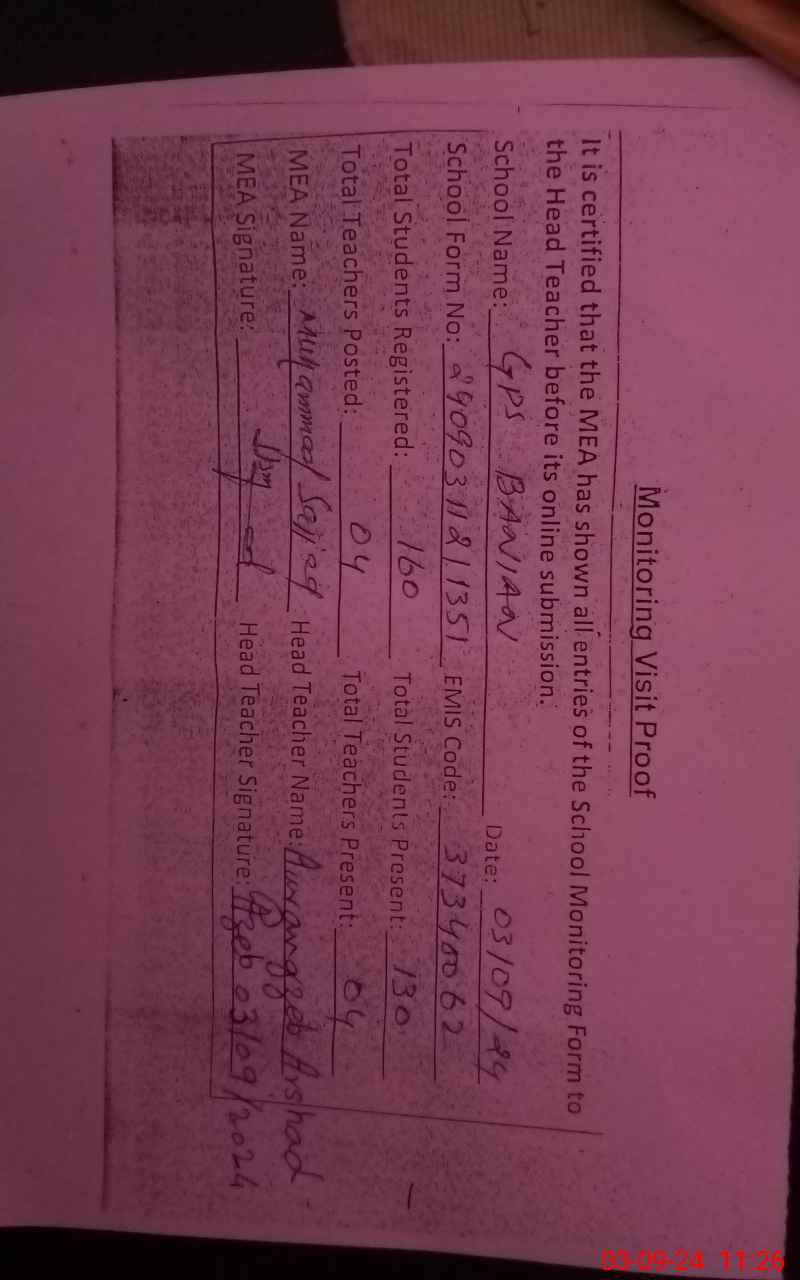 Monitoring Visit Proof
It is certified that the MEA has shown all entries of the School Monitoring Form to
the Head Teacher before its online submission.
School Name: GPS BANIAN Date: 03/09/24
School Form No: 29090311211351 EMIS Code: 37340062
Total Students Registered: 160 Total Students Present: 130
Total Teachers Posted: 04 Total Teachers Present: 04
MEA Name: Muhammad Sajjad Head Teacher Name: Aurangzeb Arshad
MEA Signature: Head Teacher Signature: Azeb 03/09/2024
03-09-24 11:26